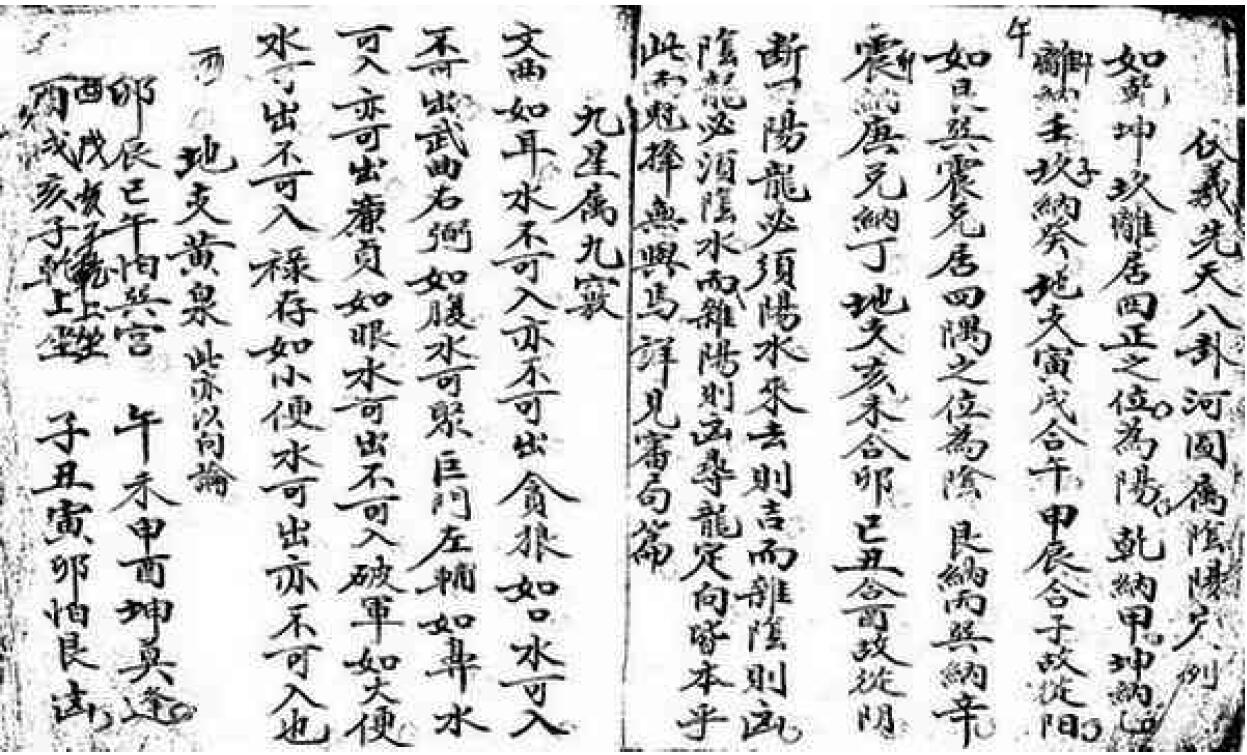 伏羲先天八卦河圖属陰陽穴例
如乾坤坎離居四正之位為陽乾納甲坤納乙
午
離納壬坎納癸地支寅戌合午申辰合子故從陽
子
如艮巽震兌居四隅之位為陰艮納丙巽納辛
震納庚兌納丁地支亥未合卯巳丑合酉故從陰
卯
断曰陽龍必須陽水來去則吉而雜陰則凶
陰龍必須陰水而雜陽則凶尋龍定向皆本乎
此而趋擇無與焉詳見審局篇
九星属九竅
文曲如耳水不可入亦不可出貪狼如口水可入
不可出武曲右弼如腹水可聚巨門左輔如鼻水
可入亦可出廉貞如眼水可出不可入破軍如大便
水可出不可入祿存如小便水可出亦不可入也
地支黄泉此亦以向論
卯辰巳午怕巽宫午未申酉坤莫逢
酉戌亥子乾上坐
酉戌亥子乾上坐子丑寅卯怕艮凶